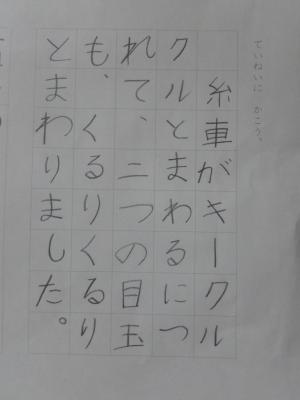 ていねいに かこう。
糸車がキークル
クルとまわるにつ
れて、二つの目玉
も、くるりくるり
とまわりました。